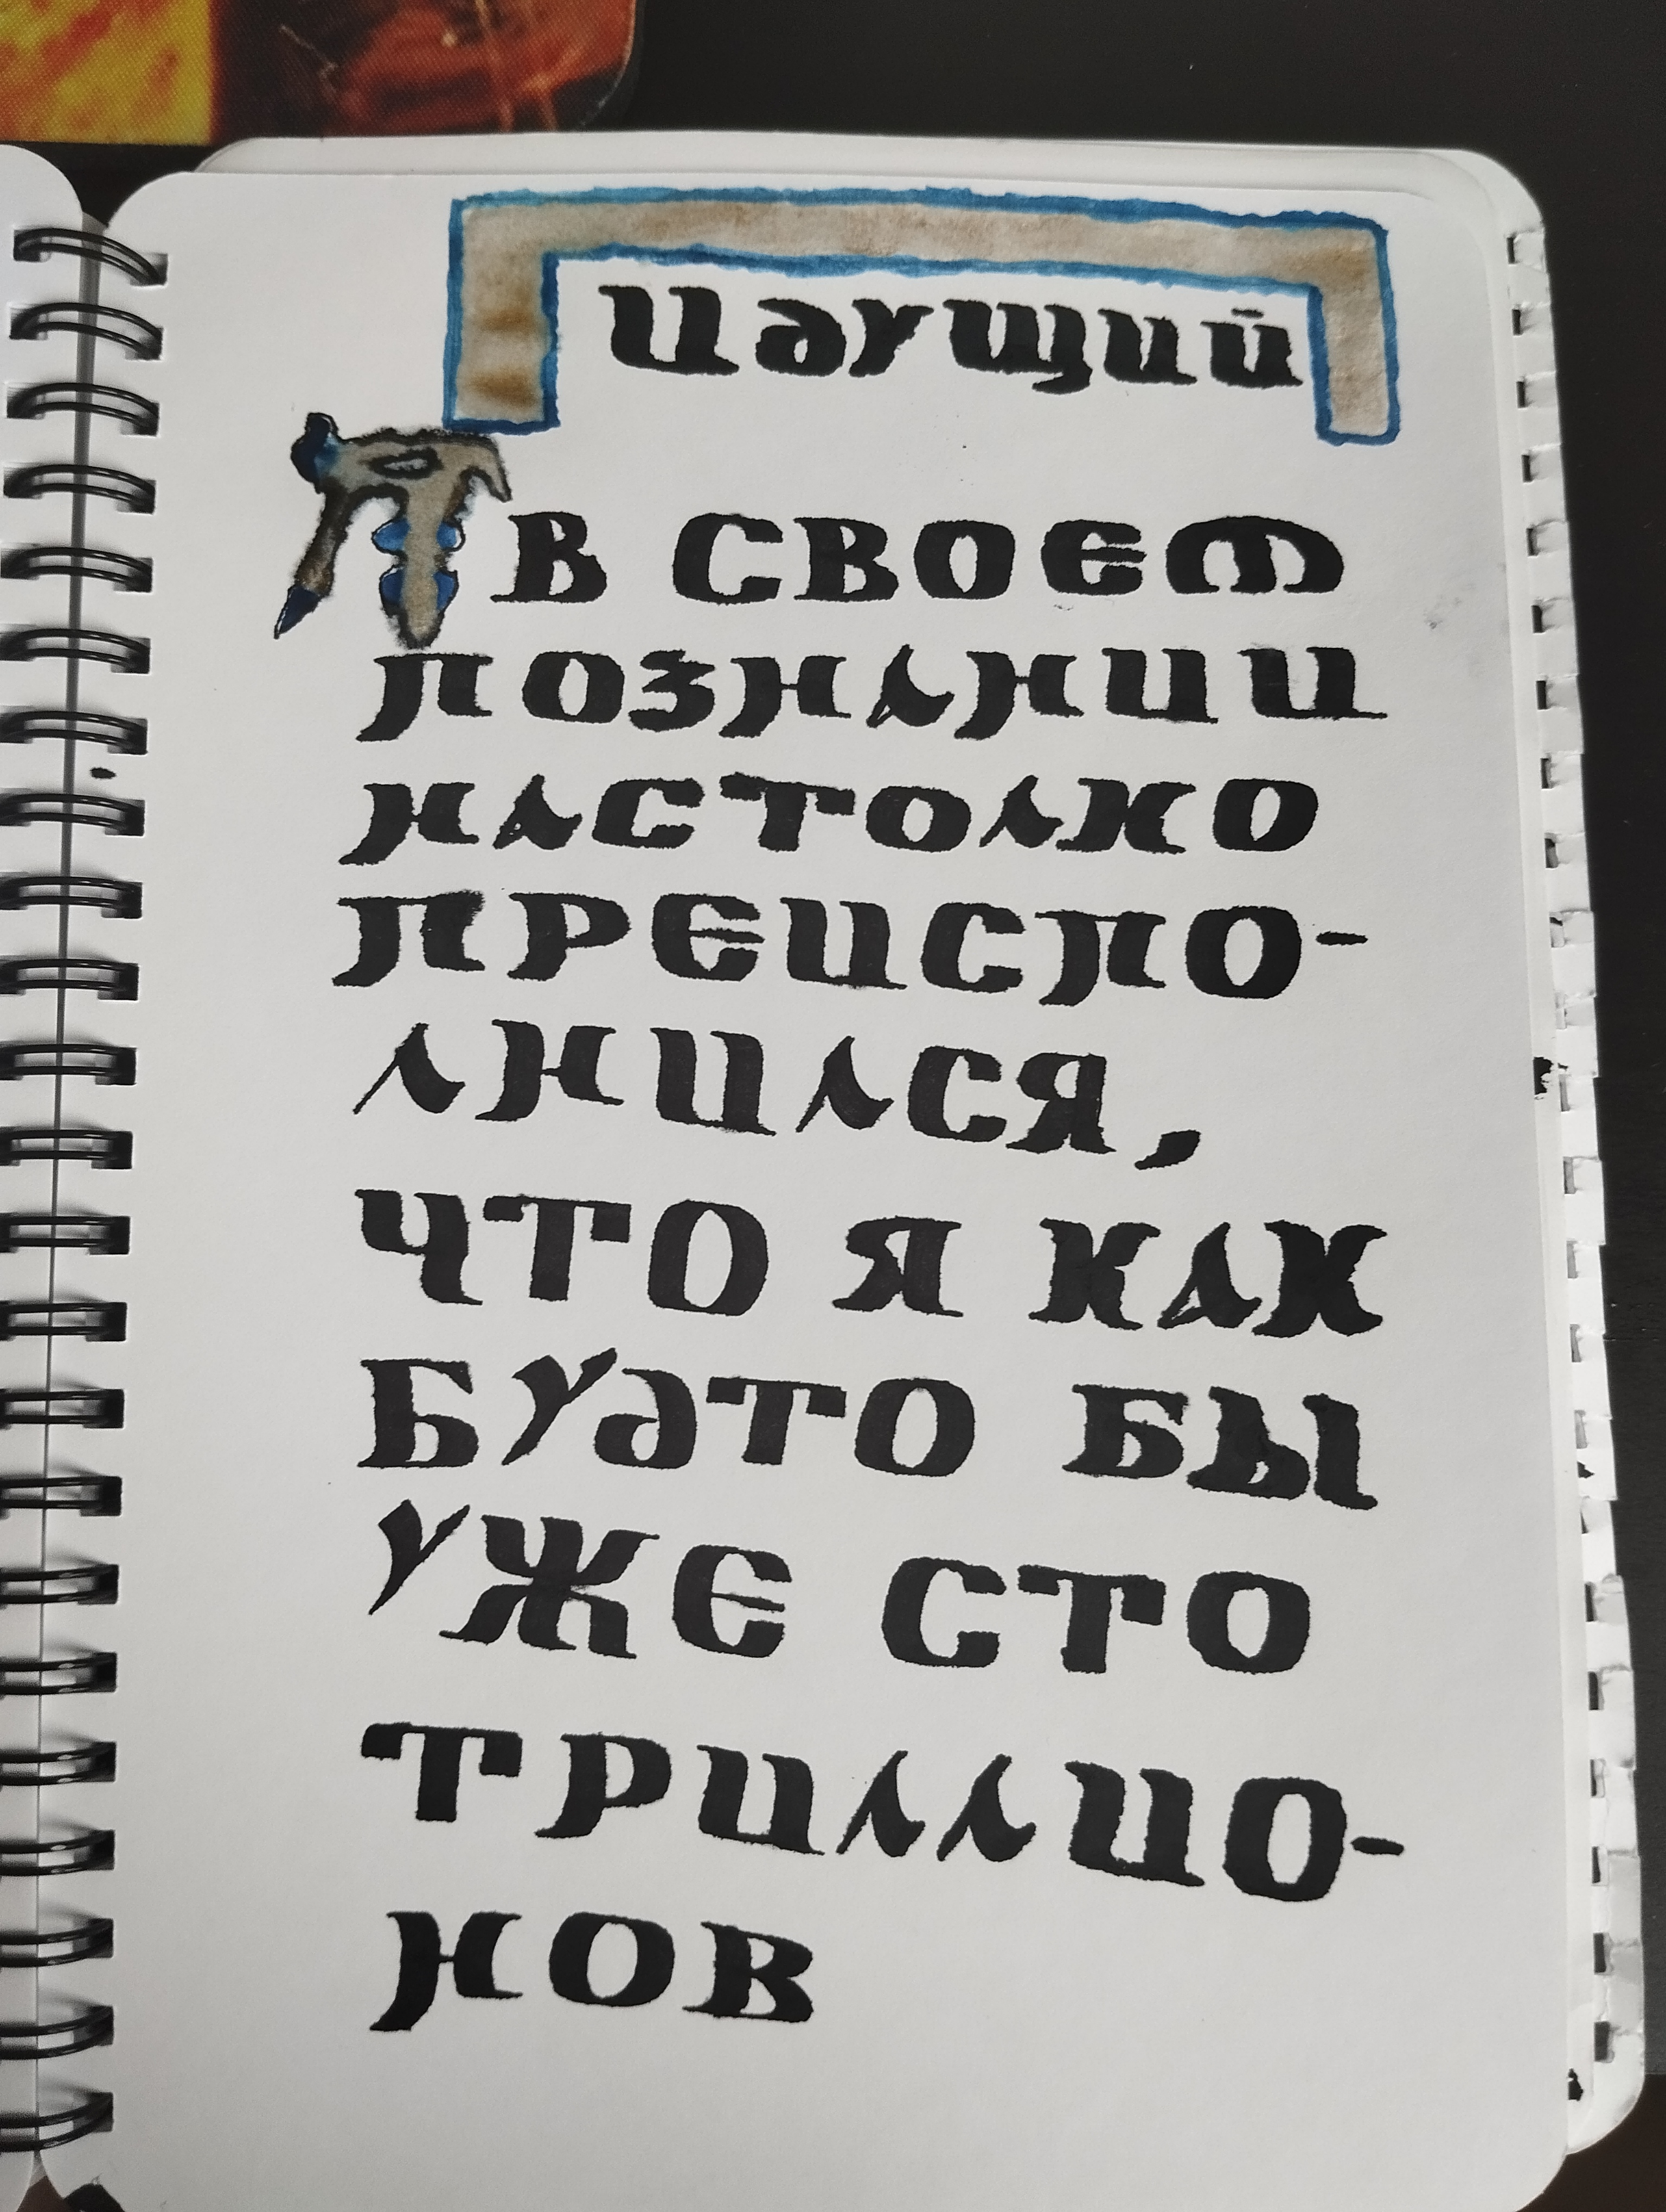 Идущий
Я В СВОЕМ
ПОЗНАНИИ
НАСТОЛКО
ПРЕИСПО-
ЛНИЛСЯ,
ЧТО Я КАК
БУДТО БЫ
УЖЕ СТО
ТРИЛЛИО-
НОВ